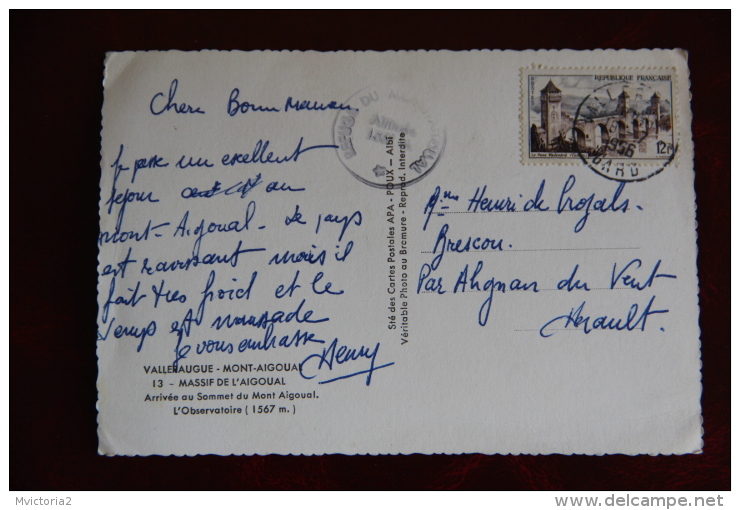 Chere Bonne Maman.
Je passe un excellent
sejour au
mont-Aigoual. Le pays
est ravissant mais il
fait très froid et le
temps est maussade
Je vous embrasse
Henry
VALLERAUGUE - MONT-AIGOUAL
13 - MASSIF DE L'AIGOUAL
Arrivée au Sommet du Mont Aigoual.
L'Observatoire ( 1567 m. )
Sté des Cartes Postales APA - POUX - Albi
Véritable Photo au Bromure - Reprod. Interdite
REFUGE DU AIGOUAL
Altitude
REPUBLIQUE FRANÇAISE
12F
1956
GARD
Henri de Crozals.
Brescou.
Par Alignan du Vent
Herault.
Mvictoria2
www.delcampe.net